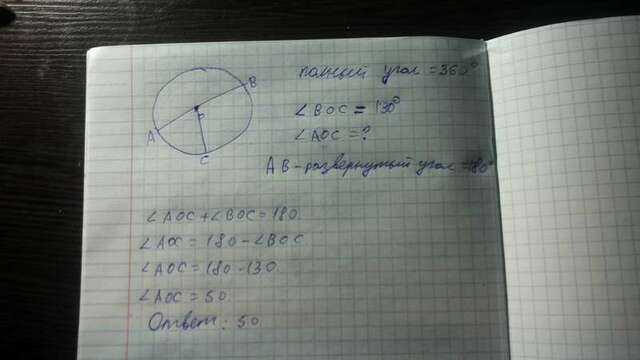 полный угол = 360°
B
∠BOC = 130°
O
A
∠AOC = ?
C
AB - развернутый угол = 180°
∠AOC + ∠BOC = 180.
∠AOC = 180 - ∠BOC
∠AOC = 180 - 130.
∠AOC = 50.
Ответ: 50.